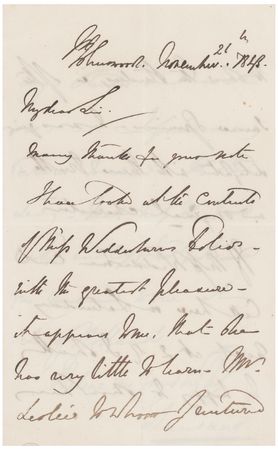 November 21th 1848.
My dear Sir,
Many thanks for your note
I have looked at the contents
of Miss Wedderburns Folios
with the greatest pleasure -
it appears to me, that she
has very little to learn - Mr
Leslie to whom I ventured